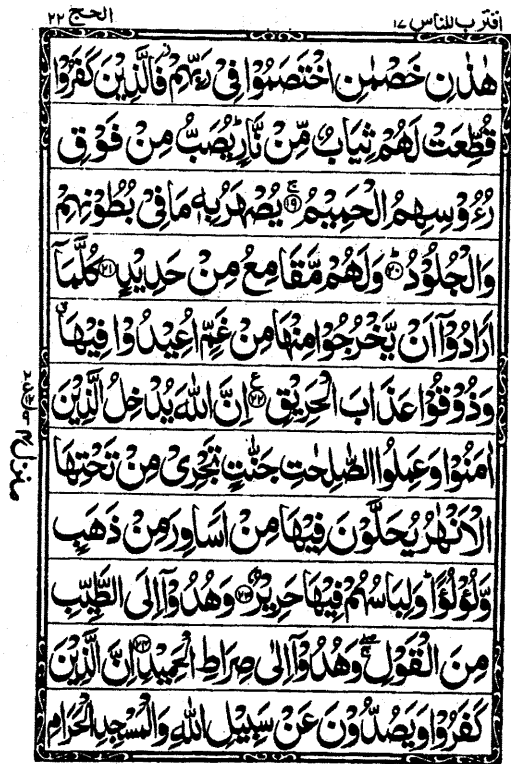 اقترب للناس ۱۷
الحج ۲۲
هٰذٰنِ خَصْمٰنِ اخْتَصَمُوْا فِیْ رَبِّهِمْ ؗ فَالَّذِیْنَ كَفَرُوْا
قُطِّعَتْ لَهُمْ ثِیَابٌ مِّنْ نَّارٍ ؕ یُصَبُّ مِنْ فَوْقِ
رُءُوْسِهِمُ الْحَمِیْمُ ۚ﴿۱۹﴾ یُصْهَرُ بِهٖ مَا فِیْ بُطُوْنِهِمْ
وَالْجُلُوْدُ ؕ﴿۲۰﴾ وَلَهُمْ مَّقَامِعُ مِنْ حَدِیْدٍ ﴿۲۱﴾ كُلَّمَاۤ
اَرَادُوْۤا اَنْ یَّخْرُجُوْا مِنْهَا مِنْ غَمٍّ اُعِیْدُوْا فِیْهَا ۗ
وَذُوْقُوْا عَذَابَ الْحَرِیْقِ ﴿۲۲﴾ ع اِنَّ اللّٰهَ یُدْخِلُ الَّذِیْنَ
اٰمَنُوْا وَعَمِلُوا الصّٰلِحٰتِ جَنّٰتٍ تَجْرِیْ مِنْ تَحْتِهَا
الْاَنْهٰرُ یُحَلَّوْنَ فِیْهَا مِنْ اَسَاوِرَ مِنْ ذَهَبٍ
وَّلُؤْلُؤًا ؕ وَلِبَاسُهُمْ فِیْهَا حَرِیْرٌ ﴿۲۳﴾ وَهُدُوْۤا اِلَی الطَّیِّبِ
مِنَ الْقَوْلِ ۖۚ وَهُدُوْۤا اِلٰی صِرَاطِ الْحَمِیْدِ ﴿۲۴﴾ اِنَّ الَّذِیْنَ
كَفَرُوْا وَیَصُدُّوْنَ عَنْ سَبِیْلِ اللّٰهِ وَالْمَسْجِدِ الْحَرَامِ